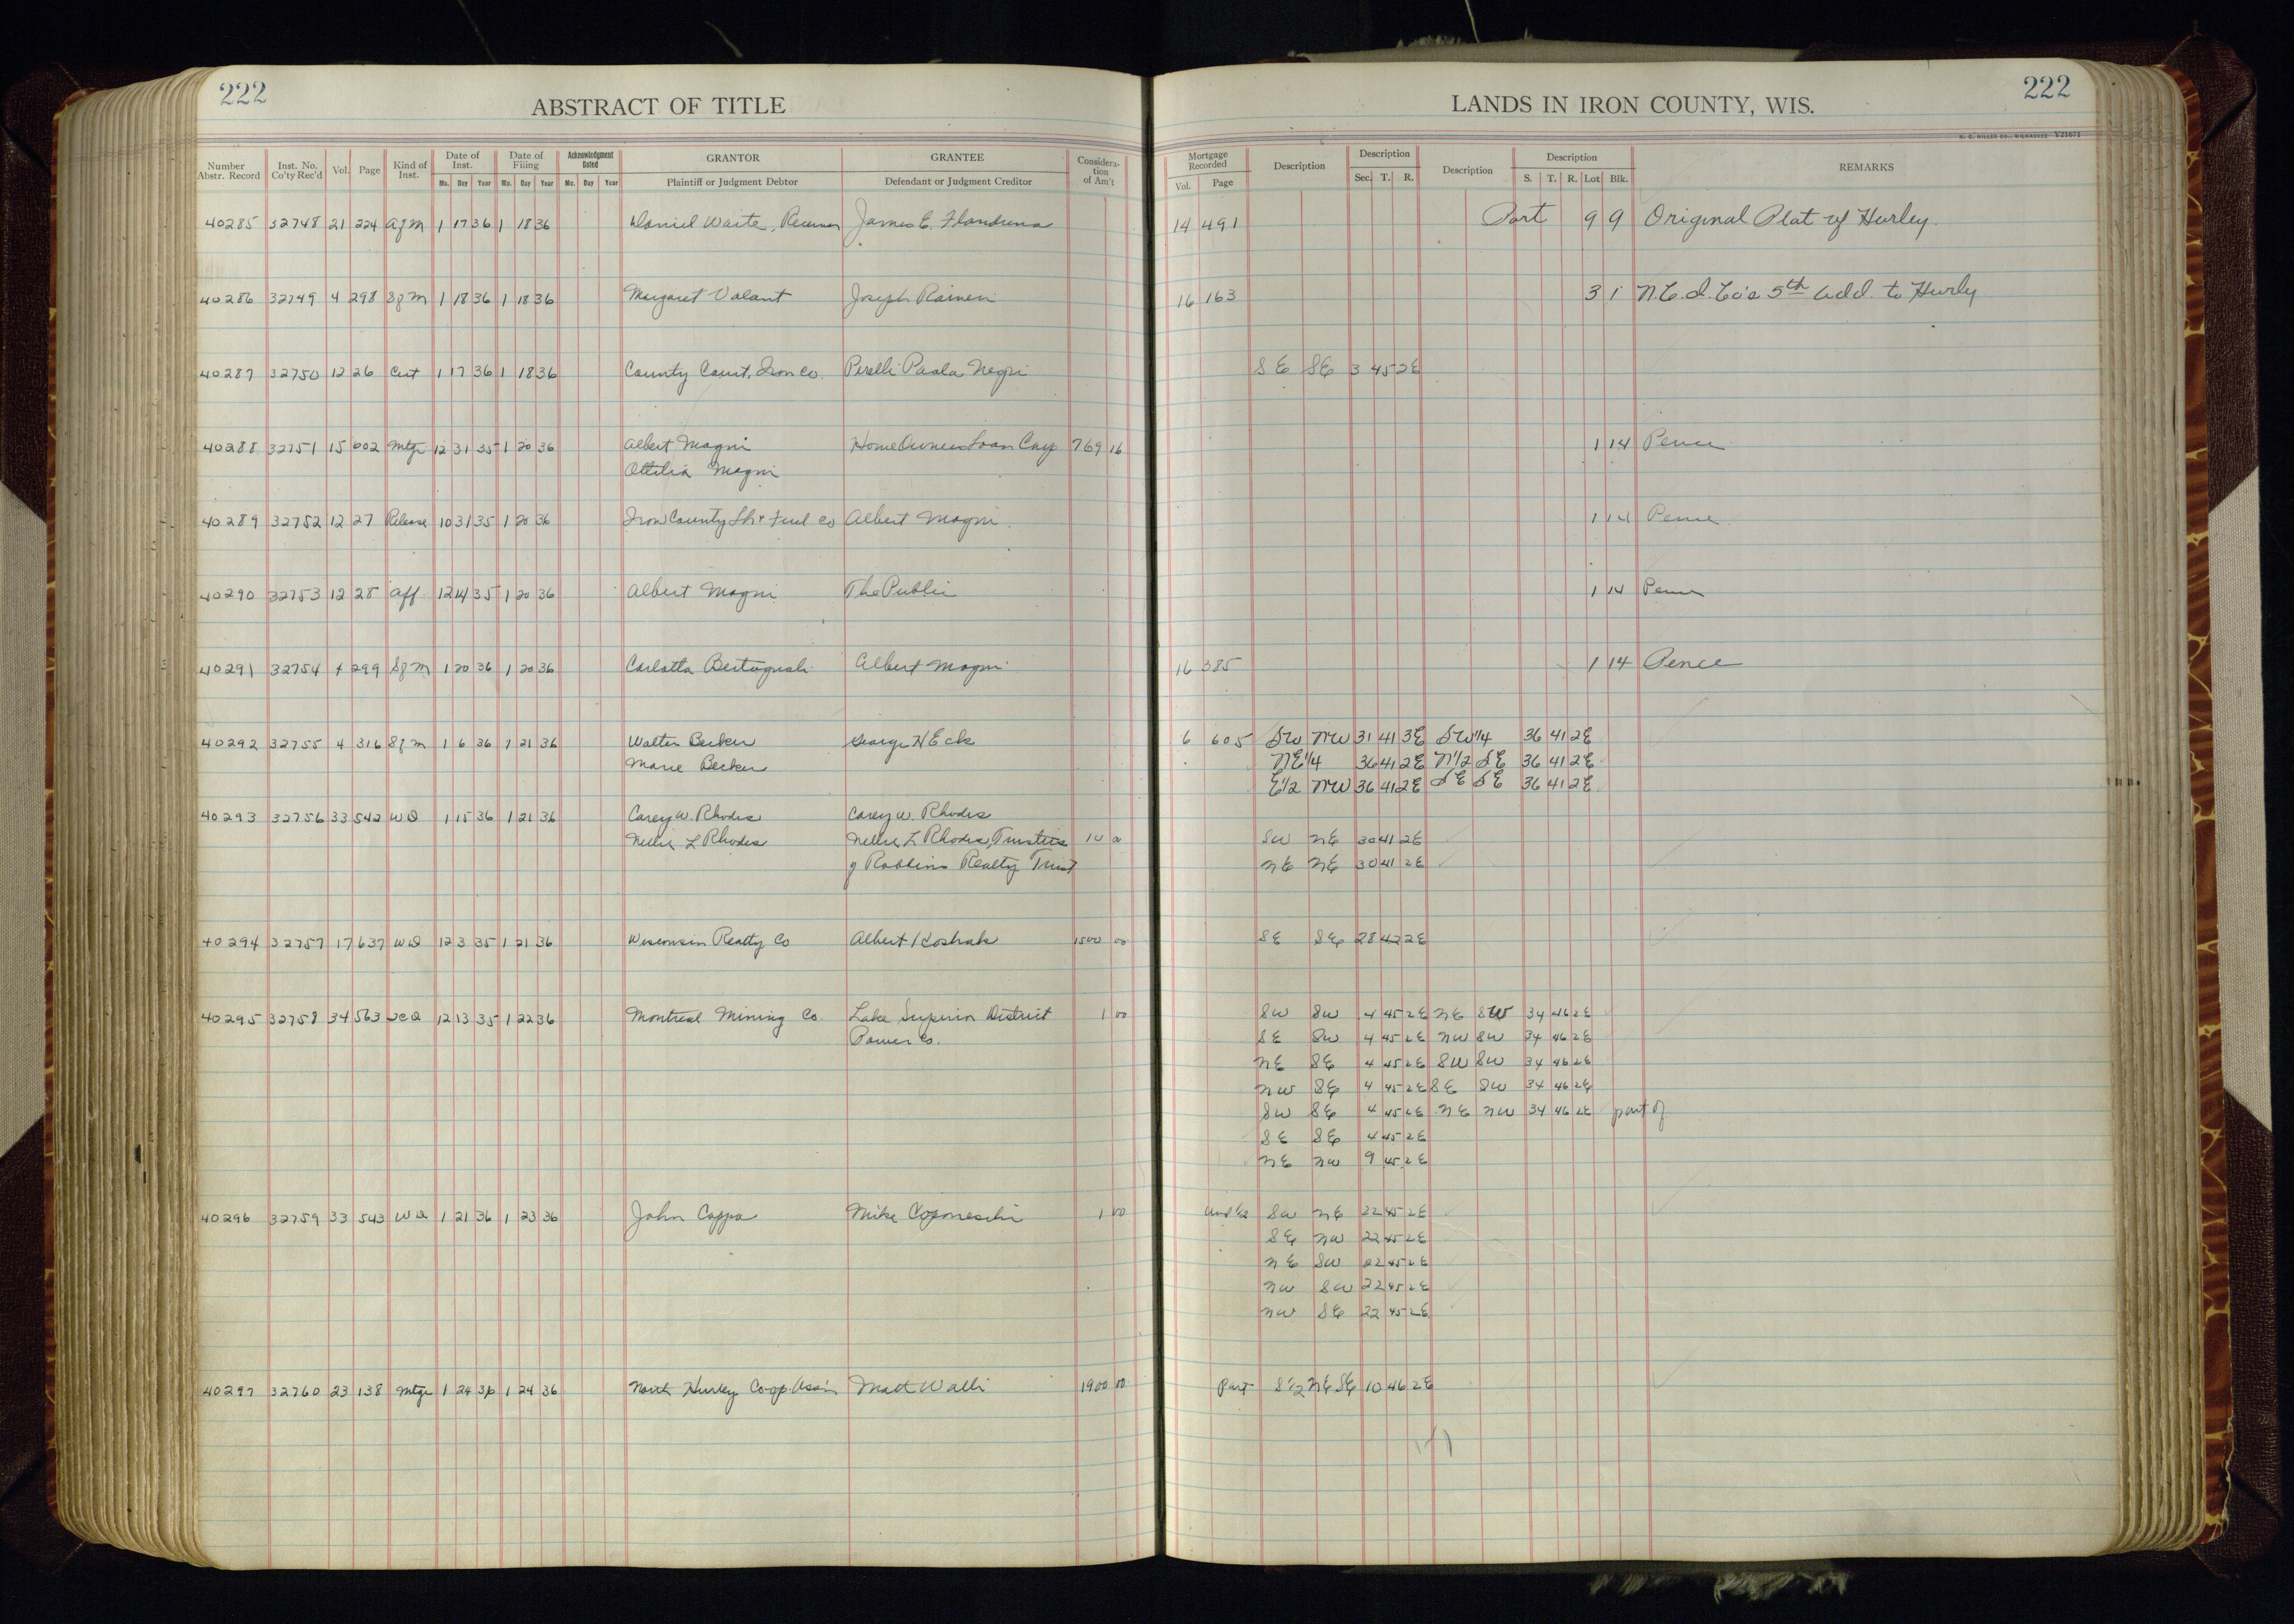 222
ABSTRACT OF TITLE
Number Abstr. Record Inst. No. Co'ty Rec'd Vol. Page Kind of Inst. Date of Inst. Mo. Day Year Date of Filing Mo. Day Year Acknowledgment Dated Mo. Day Year GRANTOR Plaintiff or Judgment Debtor GRANTEE Defendant or Judgment Creditor Considera-tion of Am't
40285 32748 21 224 AfM 1 17 36 1 18 36 Daniel Waite, James E. Flandrena
40286 32749 4 298 SfM 1 18 36 1 18 36 Margaret Valant Joseph Raineri
40287 32750 12 26 Cert 1 17 36 1 18 36 County Court, Iron Co. Perelli Paola Negri
40288 32751 15 602 Mtge 12 31 35 1 20 36 Albert Magni Home Owners Loan Corp 769 16
Ottilia Magni
40289 32752 12 27 Release 10 31 35 1 20 36 Iron County Lbr & Fuel Co Albert Magni
40290 32753 12 28 Aff 12 14 35 1 20 36 Albert Magni The Public
40291 32754 4 299 SfM 1 20 36 1 20 36 Carlotta Albert Magni
40292 32755 4 316 SfM 1 6 36 1 21 36 Walter Becker George H Eck
Marie Becker
40293 32756 33 542 WD 1 15 36 1 21 36 Carey W. Rhodes Carey W. Rhodes
Nellie L Rhodes Nellie L Rhodes, Trustees 10
of Robbins Realty Trust
40294 32757 17 637 WD 12 3 35 1 21 36 Wisconsin Realty Co Albert Koshak 1500 00
40295 32758 34 563 QCD 12 13 35 1 22 36 Montreal Mining Co Lake Superior District 1 00
Power Co.
40296 32759 33 543 WD 1 21 36 1 23 36 John Cappa Mike Coponeschi 1 00
40297 32760 23 138 Mtge 1 24 36 1 24 36 North Hurley Co-op. Ass'n Matt Walli 1900 00
222
LANDS IN IRON COUNTY, WIS.
H. C. MILLER CO., MILWAUKEE Y21671
Mortgage Recorded Vol. Page Description Description Sec. T. R. Description Description S. T. R. Lot Blk. REMARKS
14 491 Part 9 9 Original Plat of Hurley.
16 163 3 1 N.C.I. Co's 5th Add. to Hurly
SE SE 3 45 2E
1 14 Pence
1 14 Pence
1 14 Pence
16 385 1 14 Pence
6 605 SW NW 31 41 3E SW1/4 36 41 2E
NE1/4 36 41 2E N1/2 SE 36 41 2E
E1/2 NW 36 41 2E SE SE 36 41 2E
SW NE 30 41 2E
NE NE 30 41 2E
SE SE 28 42 2E
SW SW 4 45 2E NE SW 34 46 2E
SE SW 4 45 2E NW SW 34 46 2E
NE SE 4 45 2E SW SW 34 46 2E
NW SE 4 45 2E SE SW 34 46 2E
SW SE 4 45 2E NE NW 34 46 2E part of
SE SE 4 45 2E
NE NW 9 45 2E
Und 1/2 SW NE 22 45 2E
SE NW 22 45 2E
NE SW 22 45 2E
NW SW 22 45 2E
NW SE 22 45 2E
Part S1/2 NE SE 10 46 2E